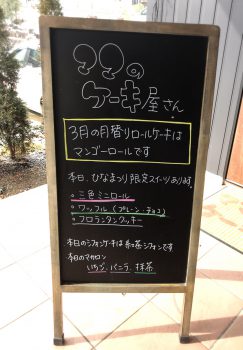 ケーキ屋さん
3月の月替りロールケーキは
マンゴーロールです
本日、ひなまつり限定スイーツあります。
。三色ミニロール
。ワッフル(プレーン・チョコ)
。フロランタンクッキー
本日のシフォンケーキは 紅茶シフォンです
本日のマカロン
いちご、バニラ、抹茶